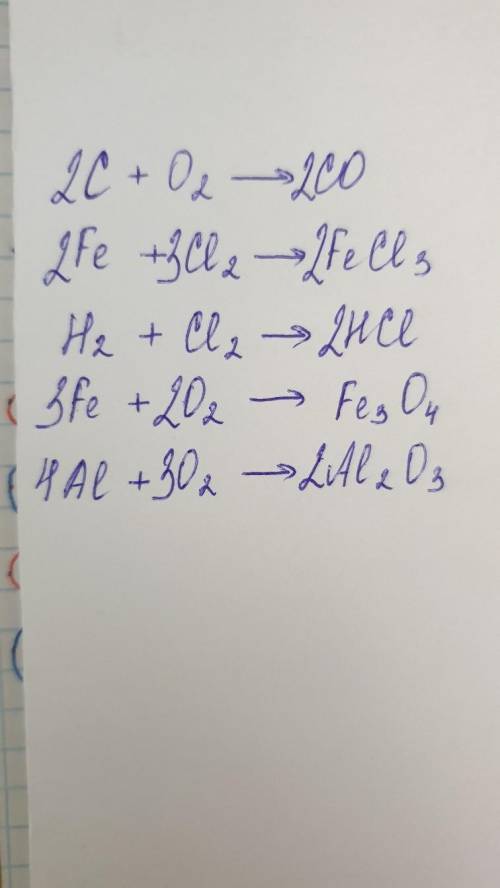 2C + O₂ → 2CO
2Fe + 3Cl₂ → 2FeCl₃
H₂ + Cl₂ → 2HCl
3Fe + 2O₂ → Fe₃O₄
4Al + 3O₂ → 2Al₂O₃